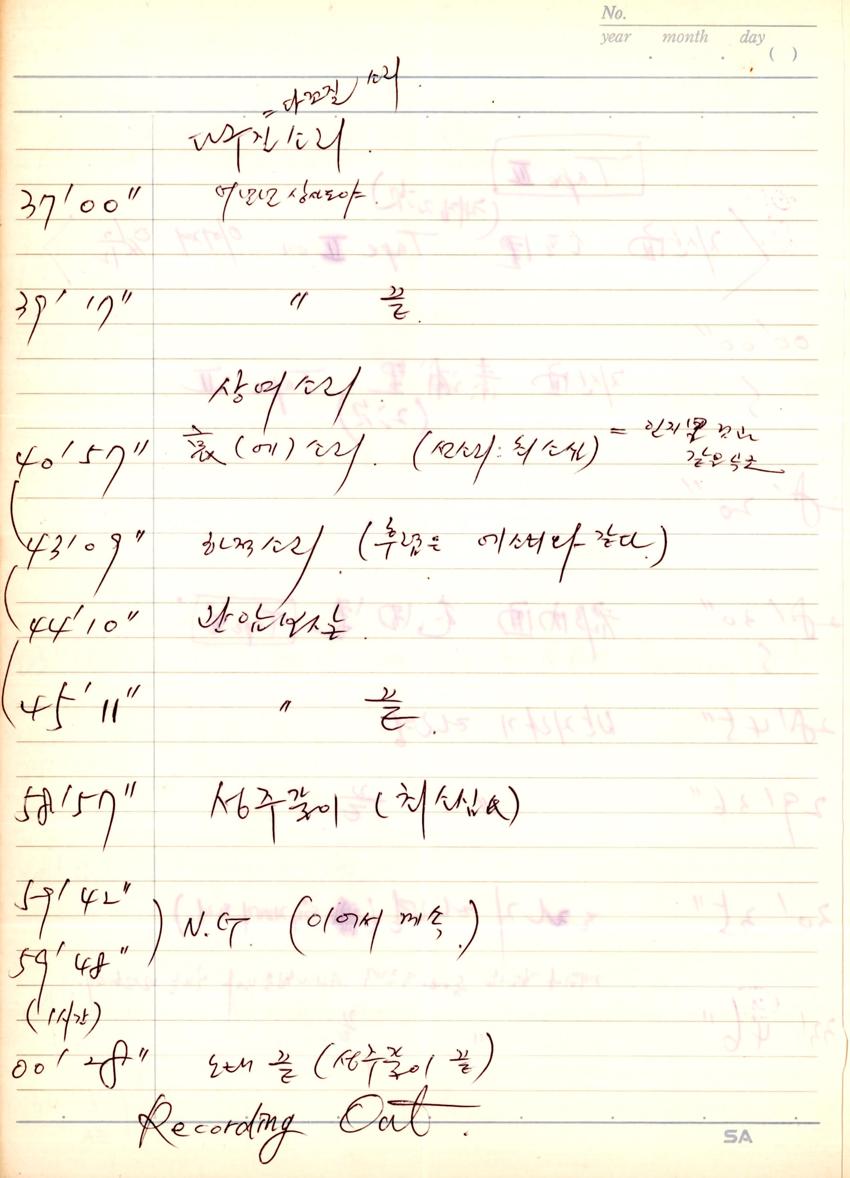 No.
year month day
( )
= 다꾸질 소리
다우진 소리.
37'00" 어널널 상사도야.
39'17" " 끝.
상여소리.
40'57" 哀(에)소리. (선소리: 최소심) =
같은 곡조
43'09" 하적소리 (후렴은 에소리와 같다.)
44'10" 관암보살.
45'11" " 끝.
58'57" 성주풀이 (최소심)
59'42"
N.G. (이어서 계속.)
59'48"
(1시간)
00'28" 노래 끝 (성주풀이 끝)
Recording Out.
SA